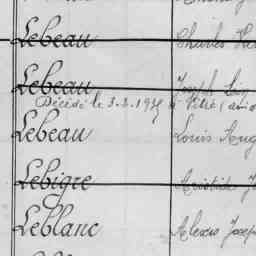 Lebeau Charles
Lebeau Joseph
Décédé le 3.2.1935 à Vitré
Lebeau Louis Aug
Lebigre Aristide J
Leblanc Alexis Josep